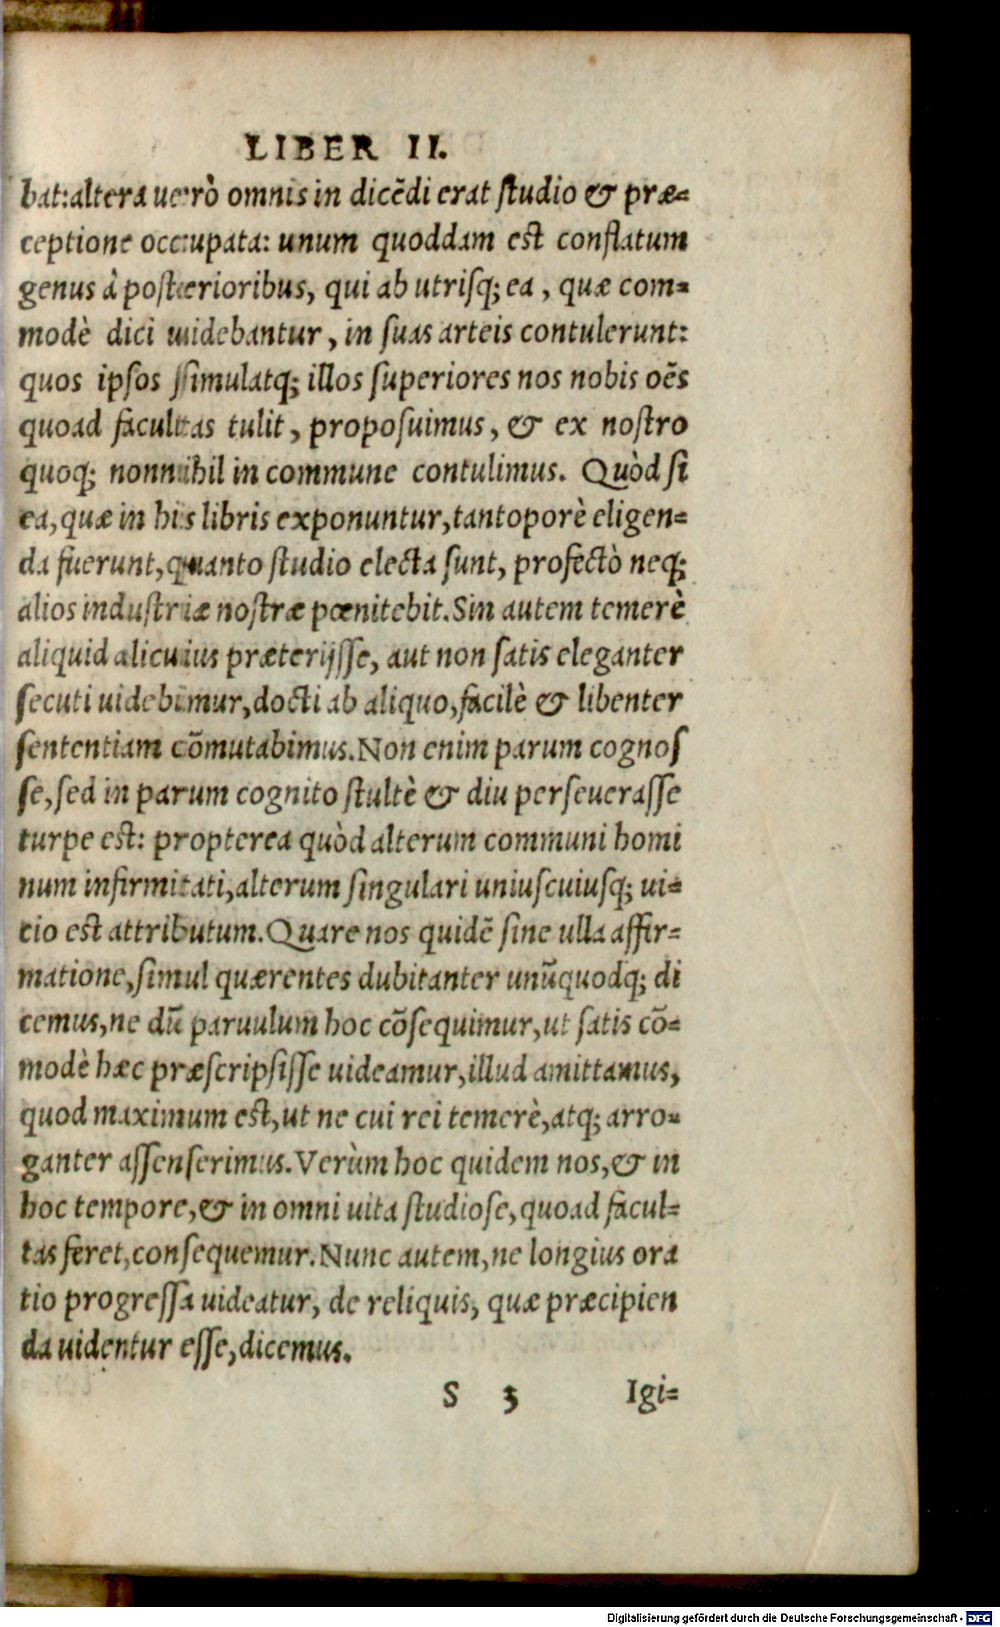 LIBER II.
bat:altera uerò omnis in dicēdi erat ſtudio & præ-
ceptione occupata: unum quoddam eſt conflatum
genus à poſterioribus, qui ab utriſq; ea, quæ com-
modè dici uidebantur, in ſuas arteis contulerunt:
quos ipſos ſimulatq; illos ſuperiores nos nobis oēs
quoad facultas tulit, propoſuimus, & ex noſtro
quoq; nonnihil in commune contulimus. Quòd ſi
ea, quæ in his libris exponuntur, tantoperè eligen-
da fuerunt, quanto ſtudio electa ſunt, profectò neq;
alios induſtriæ noſtræ pœnitebit. Sin autem temerè
aliquid alicuius præterijſſe, aut non ſatis eleganter
ſecuti uidebimur, docti ab aliquo, facilè & libenter
ſententiam cōmutabimus. Non enim parum cognoſ
ſe, ſed in parum cognito ſtultè & diu perſeueraſſe
turpe eſt: propterea quòd alterum communi homi
num infirmitati, alterum ſingulari uniuſcuiuſq; ui-
tio eſt attributum. Quare nos quidē ſine ulla affir-
matione, ſimul quærentes dubitanter unūquodq; di
cemus, ne dū paruulum hoc cōſequimur, ut ſatis cō-
modè hæc præſcripſiſſe uideamur, illud amittamus,
quod maximum eſt, ut ne cui rei temerè, atq; arro-
ganter aſſenſerimus. Verùm hoc quidem nos, & in
hoc tempore, & in omni uita ſtudioſe, quoad facul-
tas feret, conſequemur. Nunc autem, ne longius ora
tio progreſſa uideatur, de reliquis, quæ præcipien
da uidentur eſſe, dicemus.
S 3 Igi-
Digitalisierung gefördert durch die Deutsche Forschungsgemeinschaft - DFG